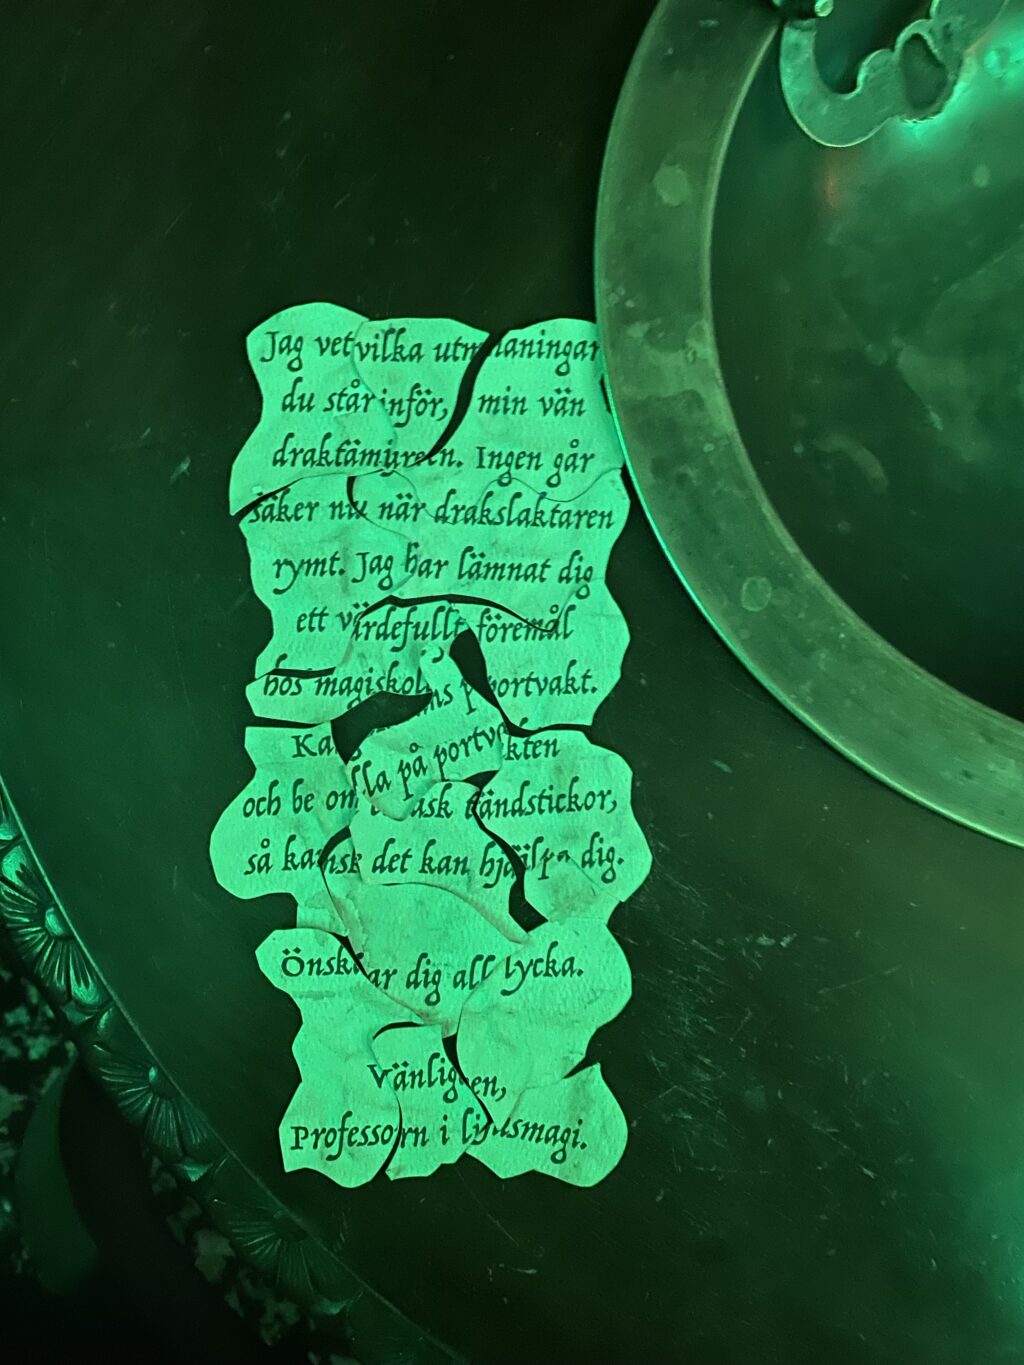 Jag vet vilka utmaningar
du står inför, min vän
draktämjaren. Ingen går
säker nu när drakslaktaren
rymt. Jag har lämnat dig
ett värdefullt föremål
hos magiskolans portvakt.
Kalla på portvakten
och be om ask tändstickor,
så kanske det kan hjälpa dig.
Önskar dig all lycka.
Vänligen,
Professorn i ljusmagi.